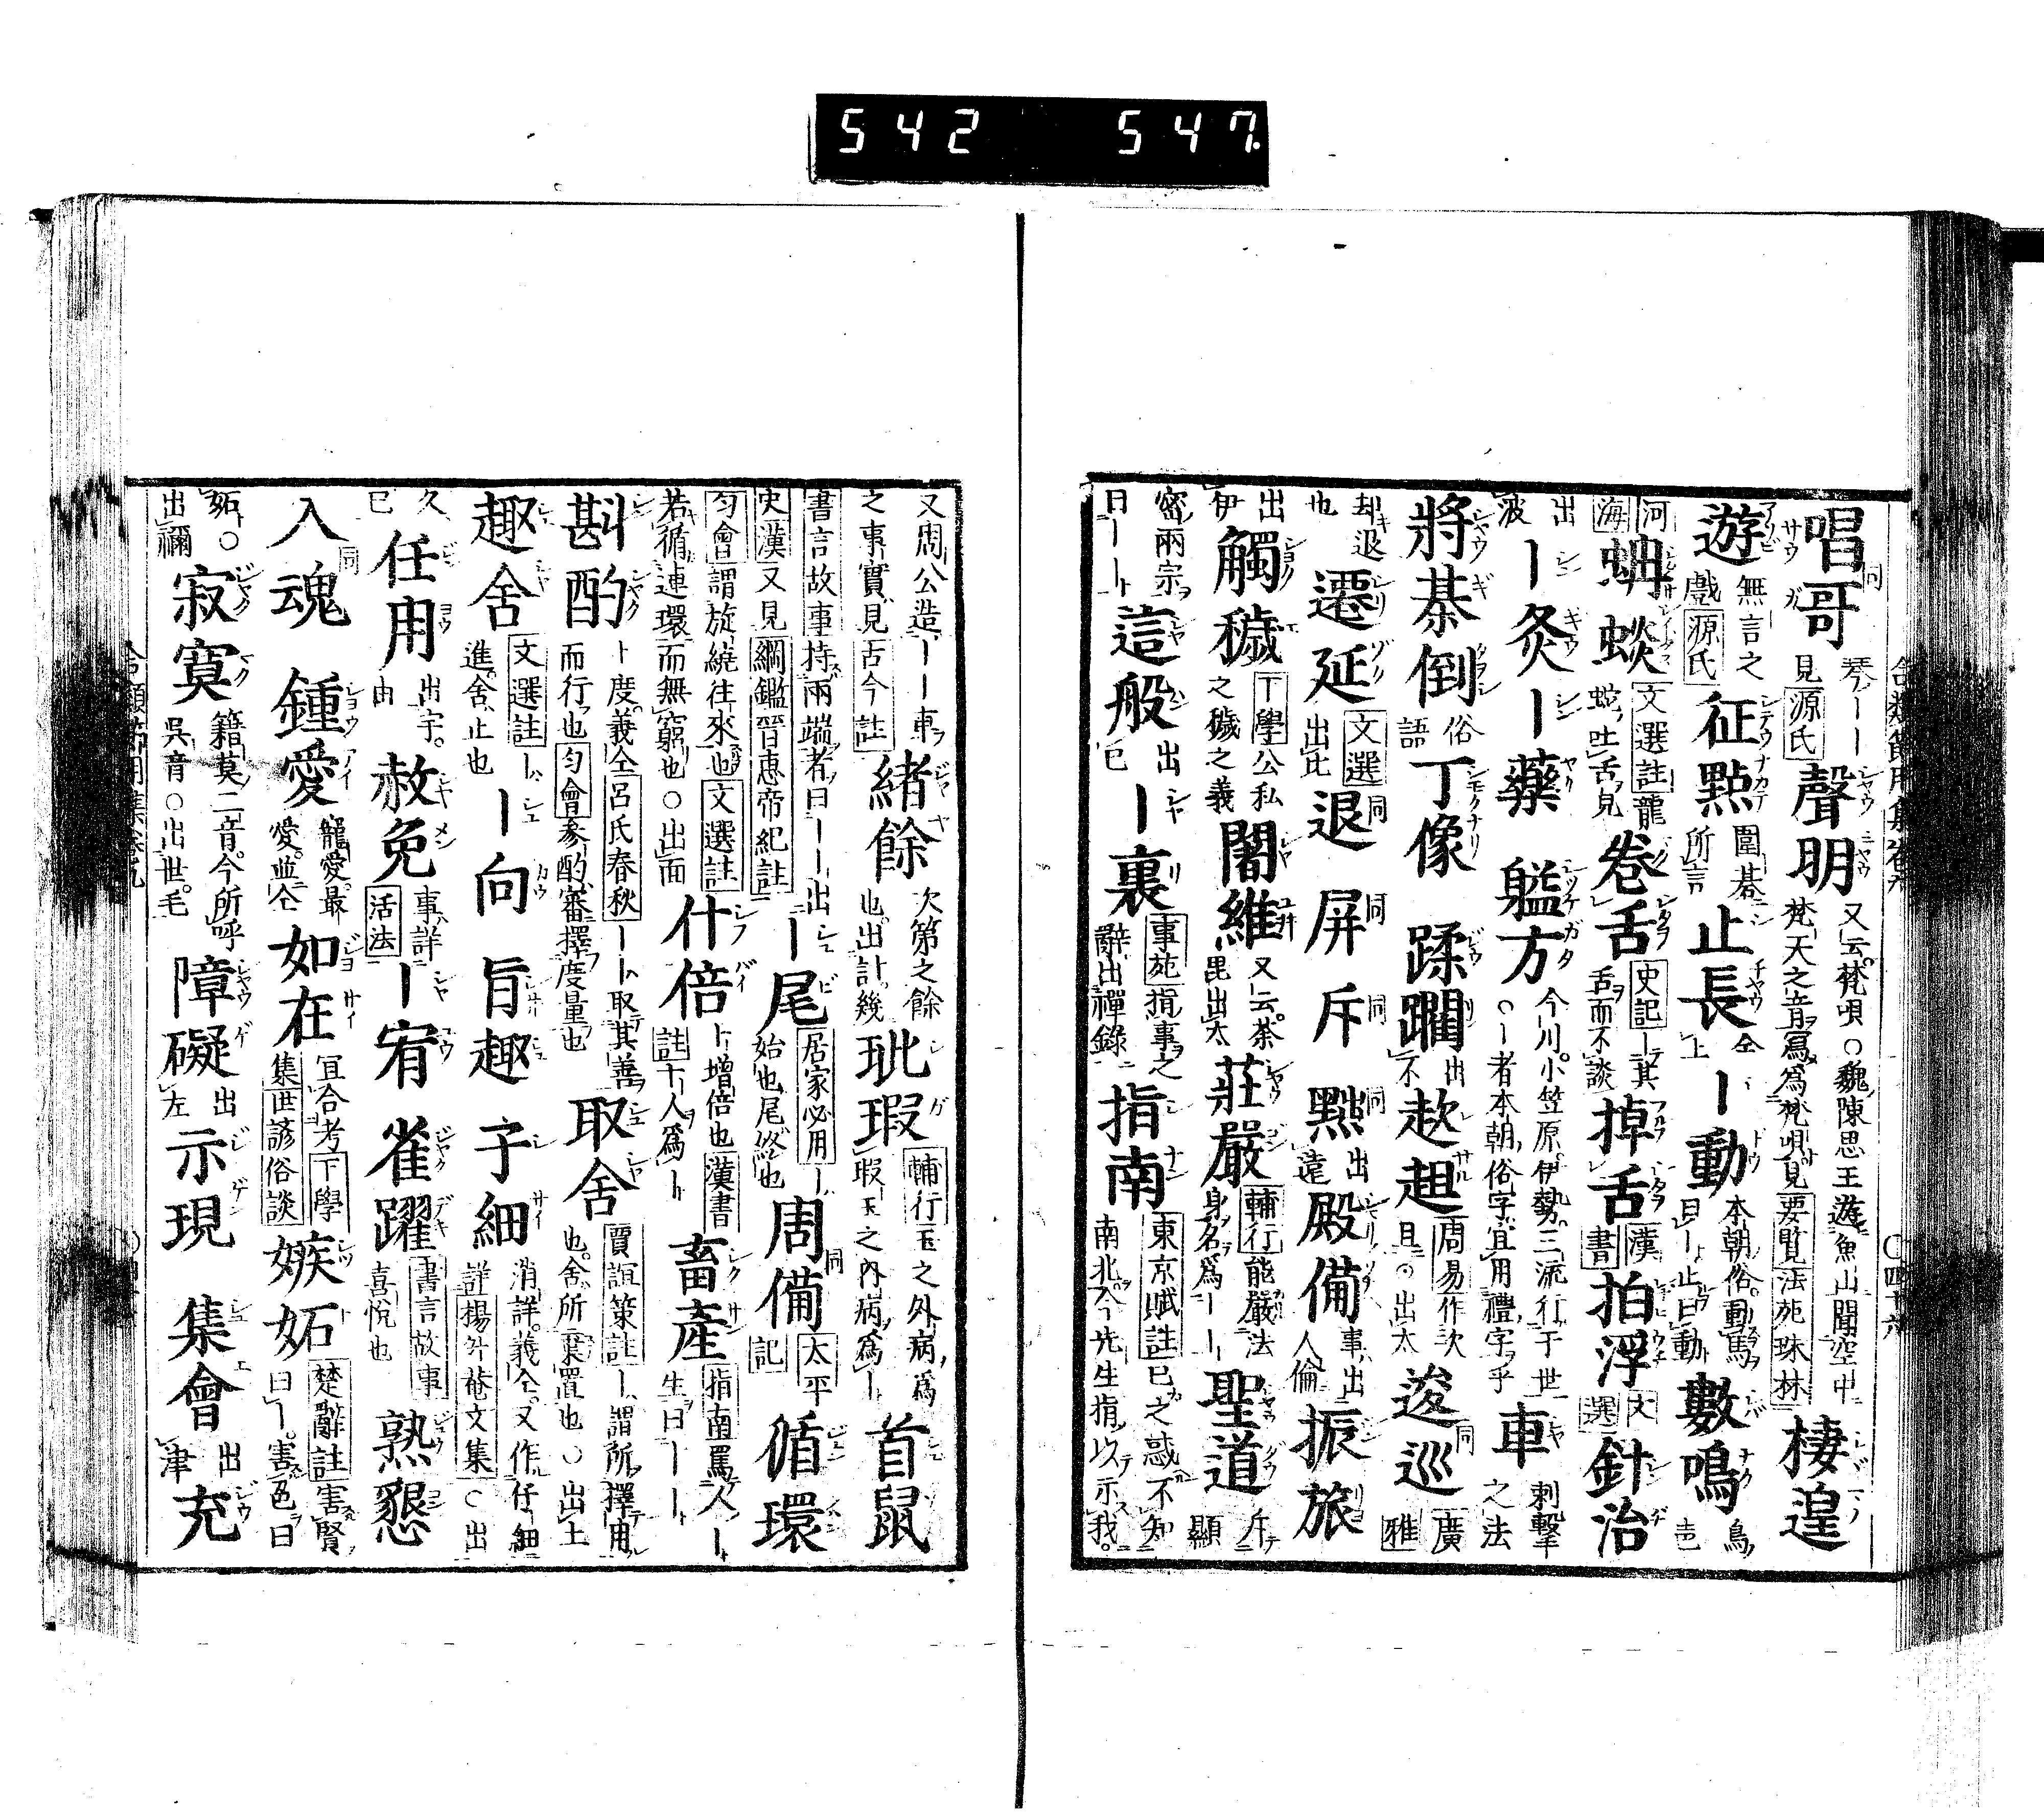 542 547
唱哥 琴ーー見源氏 聲明 又云梵唄○魏陳思王遊魚山聞空中梵天之音爲爲梵唄見要覧法苑珠林 棲遑
遊 無言之戲源氏 征點 圍碁所言 止長 仝上 ー動 本朝俗動馬曰ー止曰動 數鳴 鳥
河海 蚺蛟 文選註龍蛇吐舌見 卷舌 史記ー其舌而不談 掉舌 漢書 拍浮 文選 針治
出波 ー灸 ー藥 艗方 今川小笠原伊勢三流行于世○ー者本朝俗字宜用禮字乎 車 刺擊之法
將棊倒 俗語 丁像 蹂躙 出不 趑趄 周易作次且○出太 逡巡 廣雅
却退也 遷延 文選出比 退 屏 斥 黜 出遠 殿備 事出人倫 振旅
出伊 觸穢 下學公私之穢之義 闍維 又云荼毘出太 莊嚴 輔行能嚴法身名爲ーー 聖道 斥顯
密兩宗曰ーー 這般 出巳 ー裏 事苑指事之辭出禪錄 指南 東京賦註巳之惑不知南北今先生指以示我
又周公造ーー車之事實見古今註 緒餘 次第之餘也出計幾 玼瑕 輔行玉之外病爲玼瑕玉之內病爲ー 首鼠
書言故事持兩端者曰ーー出史漢又見綱鑑晉惠帝紀註 ー尾 居家必用ー始也尾終也 周備 太平記 循環
匀會謂旋繞往來也文選註若循連環而無窮也○出面 什倍 ト增倍也漢書註十人爲ー 畜產 指南罵人ー生曰ーー
斟酌 ー度義仝呂氏春秋ーー取其善而行也匀會參酌審擇度量也 取舍 賈誼策註ー謂所擇用也舍所棄置也○出土
趣舍 文選註ー進舍止也 ー向 旨趣 子細 消詳義仝又作仔細詳楊升菴文集○出
久巳 任用 出宇由 赦免 事詳活法 ー宥 雀躍 書言故事喜悅也 熟懇
入魂 鍾愛 寵愛最愛並仝 如在 宜合考下學集世諺俗談 嫉妬 楚辭註害賢曰ー害色曰
妬○出禰 寂寞 籍莫二音今所呼吳音○出世毛 障礙 出左 示現 集會 出津 充